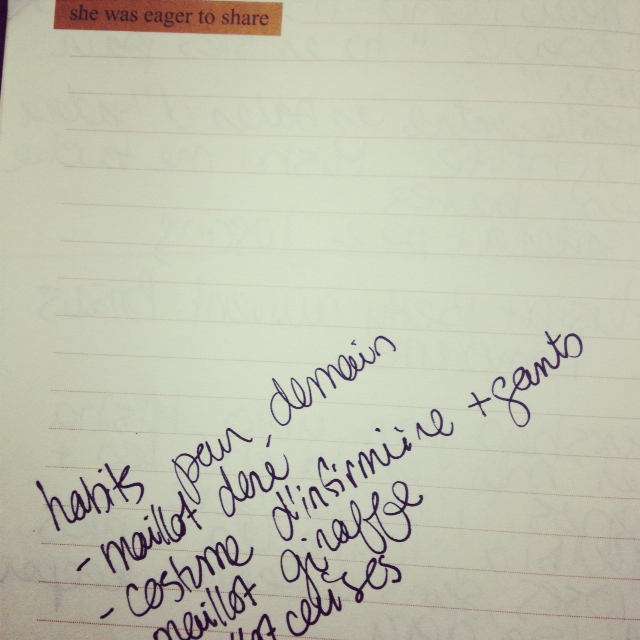 she was eager to share
habits pour demain
- maillot doré
- costume d'infirmière + gants
maillot giraffe
cerises